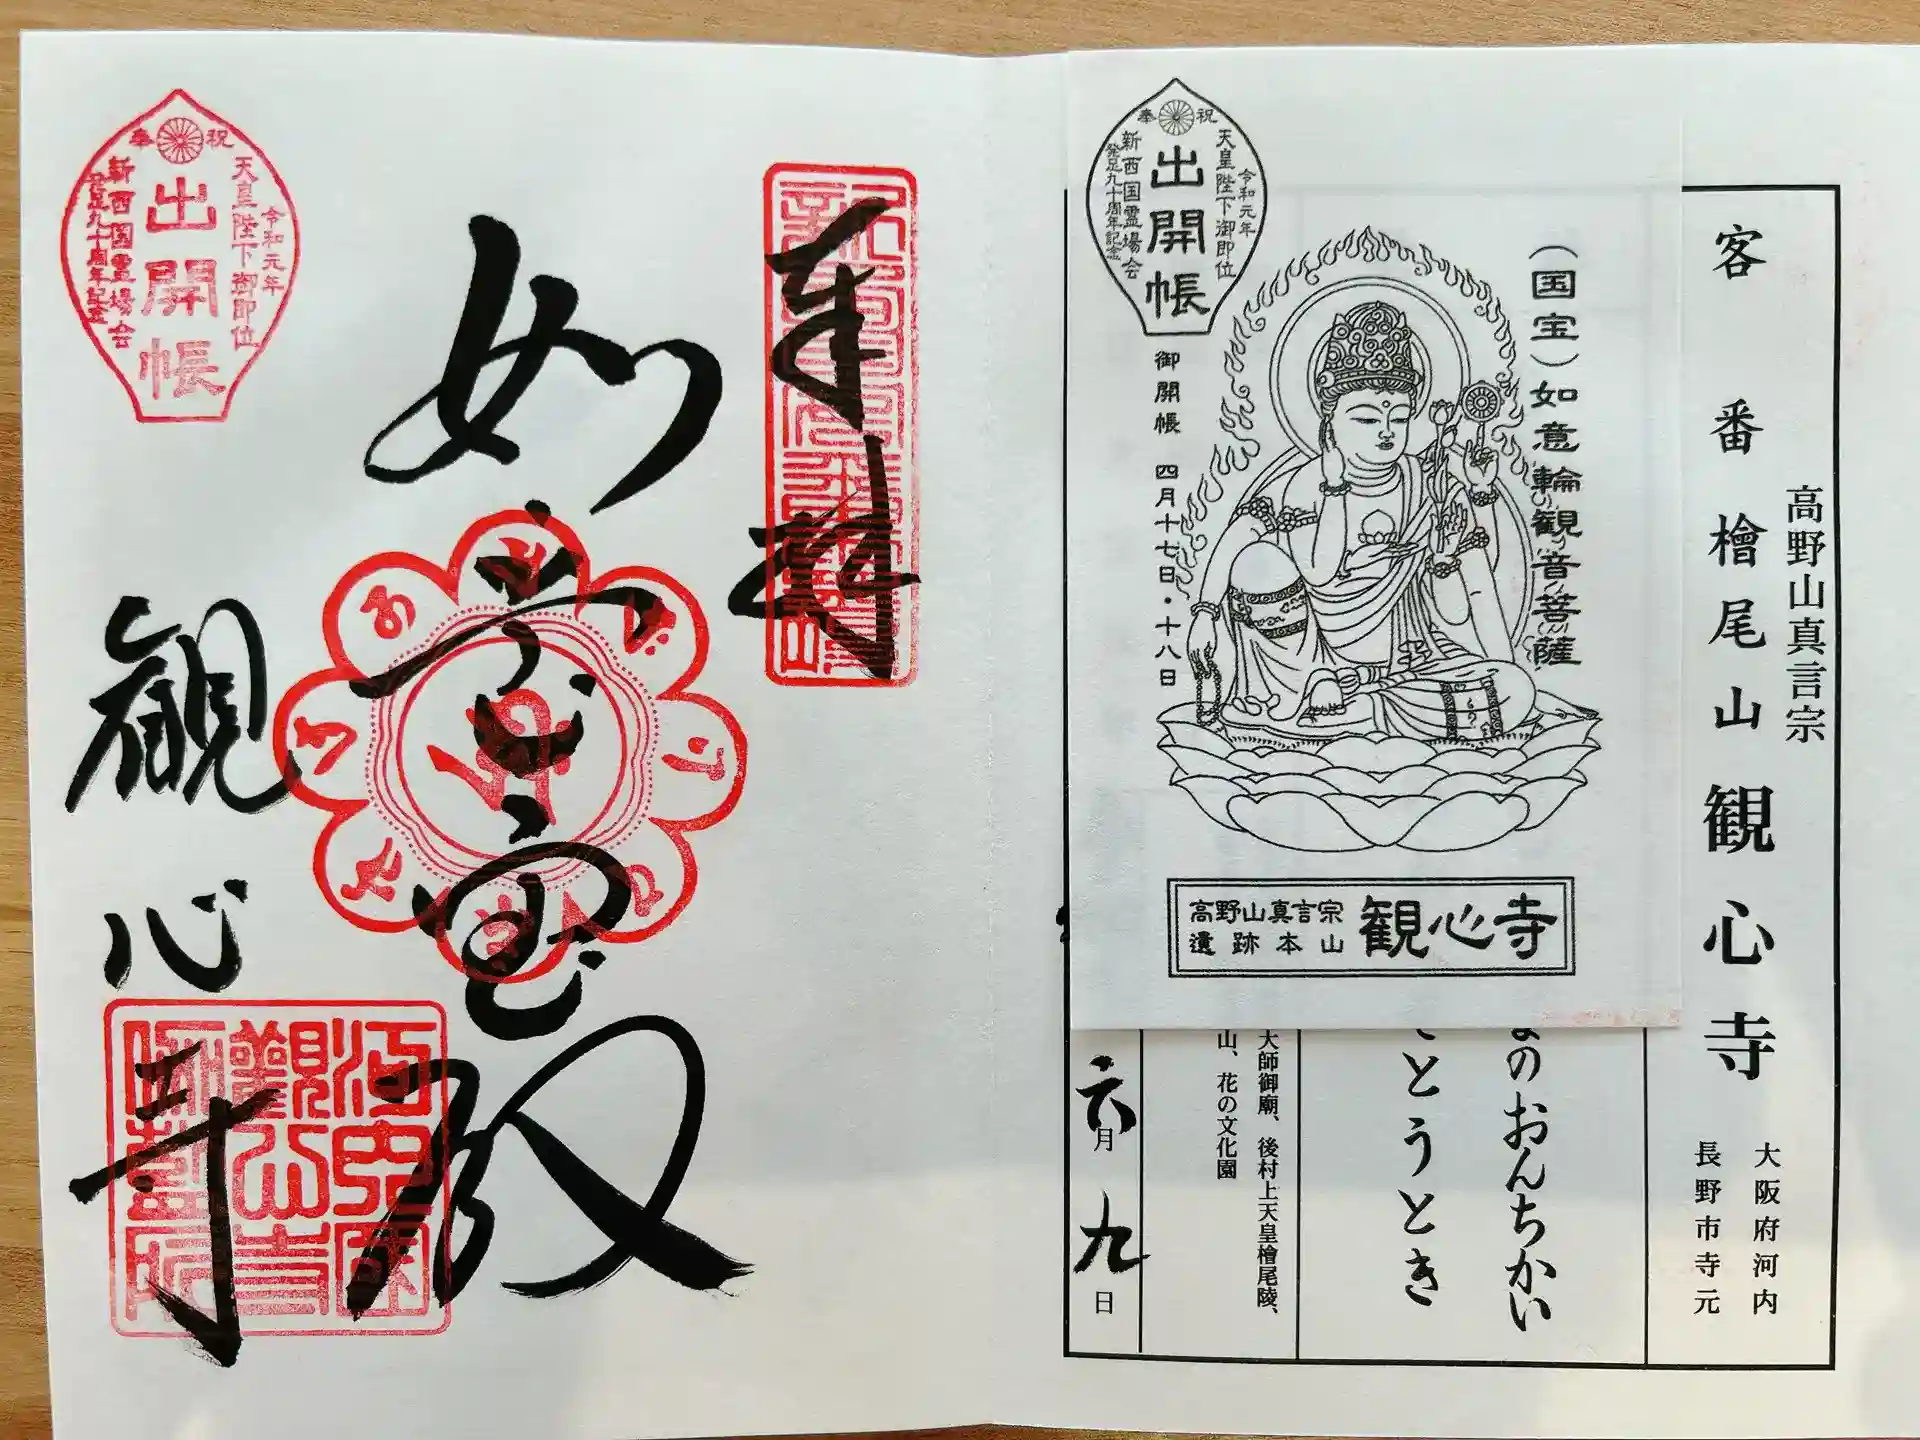 客番 檜尾山観心寺
高野山真言宗
大阪府河内
長野市寺元
のおんちかい
とうとき
大師御廟、後村上天皇檜尾陵、
山、花の文化園
六月九日
奉祝
天皇陛下御即位
令和元年
出開帳
新西国霊場会
発足九十周年記念
(国宝)如意輪観音菩薩
御開帳 四月十七日・十八日
高野山真言宗
遺跡本山
観心寺
奉拝
如意宝殿
観心寺
奉祝
天皇陛下御即位
令和元年
出開帳
新西国霊場会
発足九十周年記念